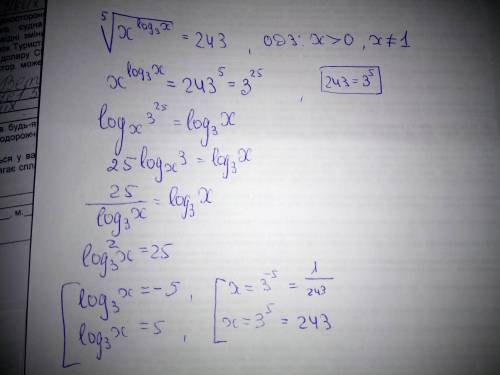 ⁵√(x^(log₃x)) = 243 , ОДЗ: x>0, x≠1
x^(log₃x) = 243⁵ = 3²⁵ , 243 = 3⁵
logₓ3²⁵ = log₃x
25 logₓ3 = log₃x
25/log₃x = log₃x
log₃²x = 25
[ log₃x = -5 , [ x = 3⁻⁵ = 1/243
log₃x = 5 , x = 3⁵ = 243